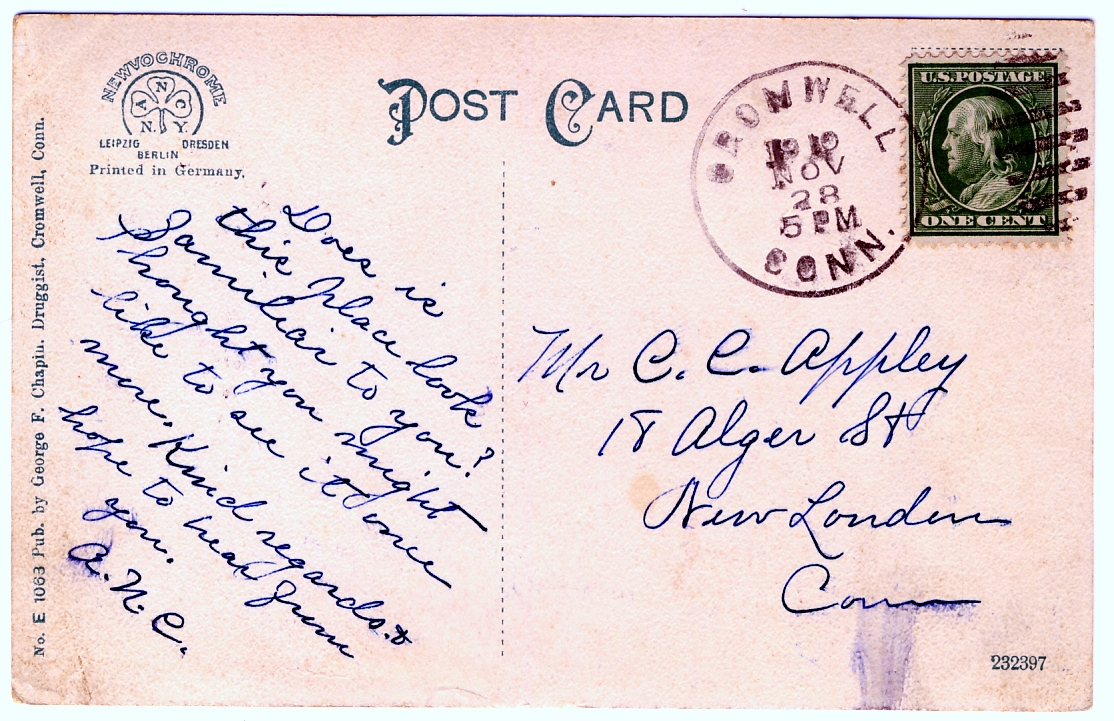 NEWVOCHROME
A N C
N. Y.
LEIPZIG DRESDEN
BERLIN
Printed in Germany.
POST CARD
CROMWELL
1910
NOV
28
5 PM
CONN.
U.S. POSTAGE
ONE CENT
No. E 1063 Pub. by George F. Chapin. Druggist, Cromwell, Conn.
Does is
this place look
familiar to you?
Thought you might
like to see it once
more. Kind regards. &
hope to hear from
you.
A. N. C.
Mr C. C. Appley
18 Alger St
New London
Conn
232397